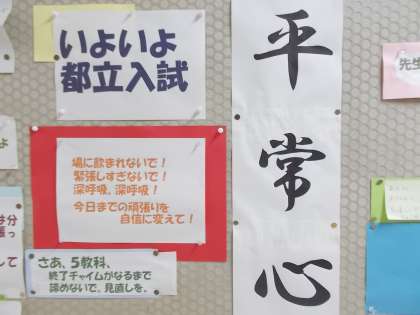 いよいよ
都立入試
場に飲まれないで！
緊張しすぎないで！
深呼吸、深呼吸！
今日までの頑張りを
自信に変えて！
さあ、5教科、
終了チャイムがなるまで
諦めないで、見直しを。
平常心
先生